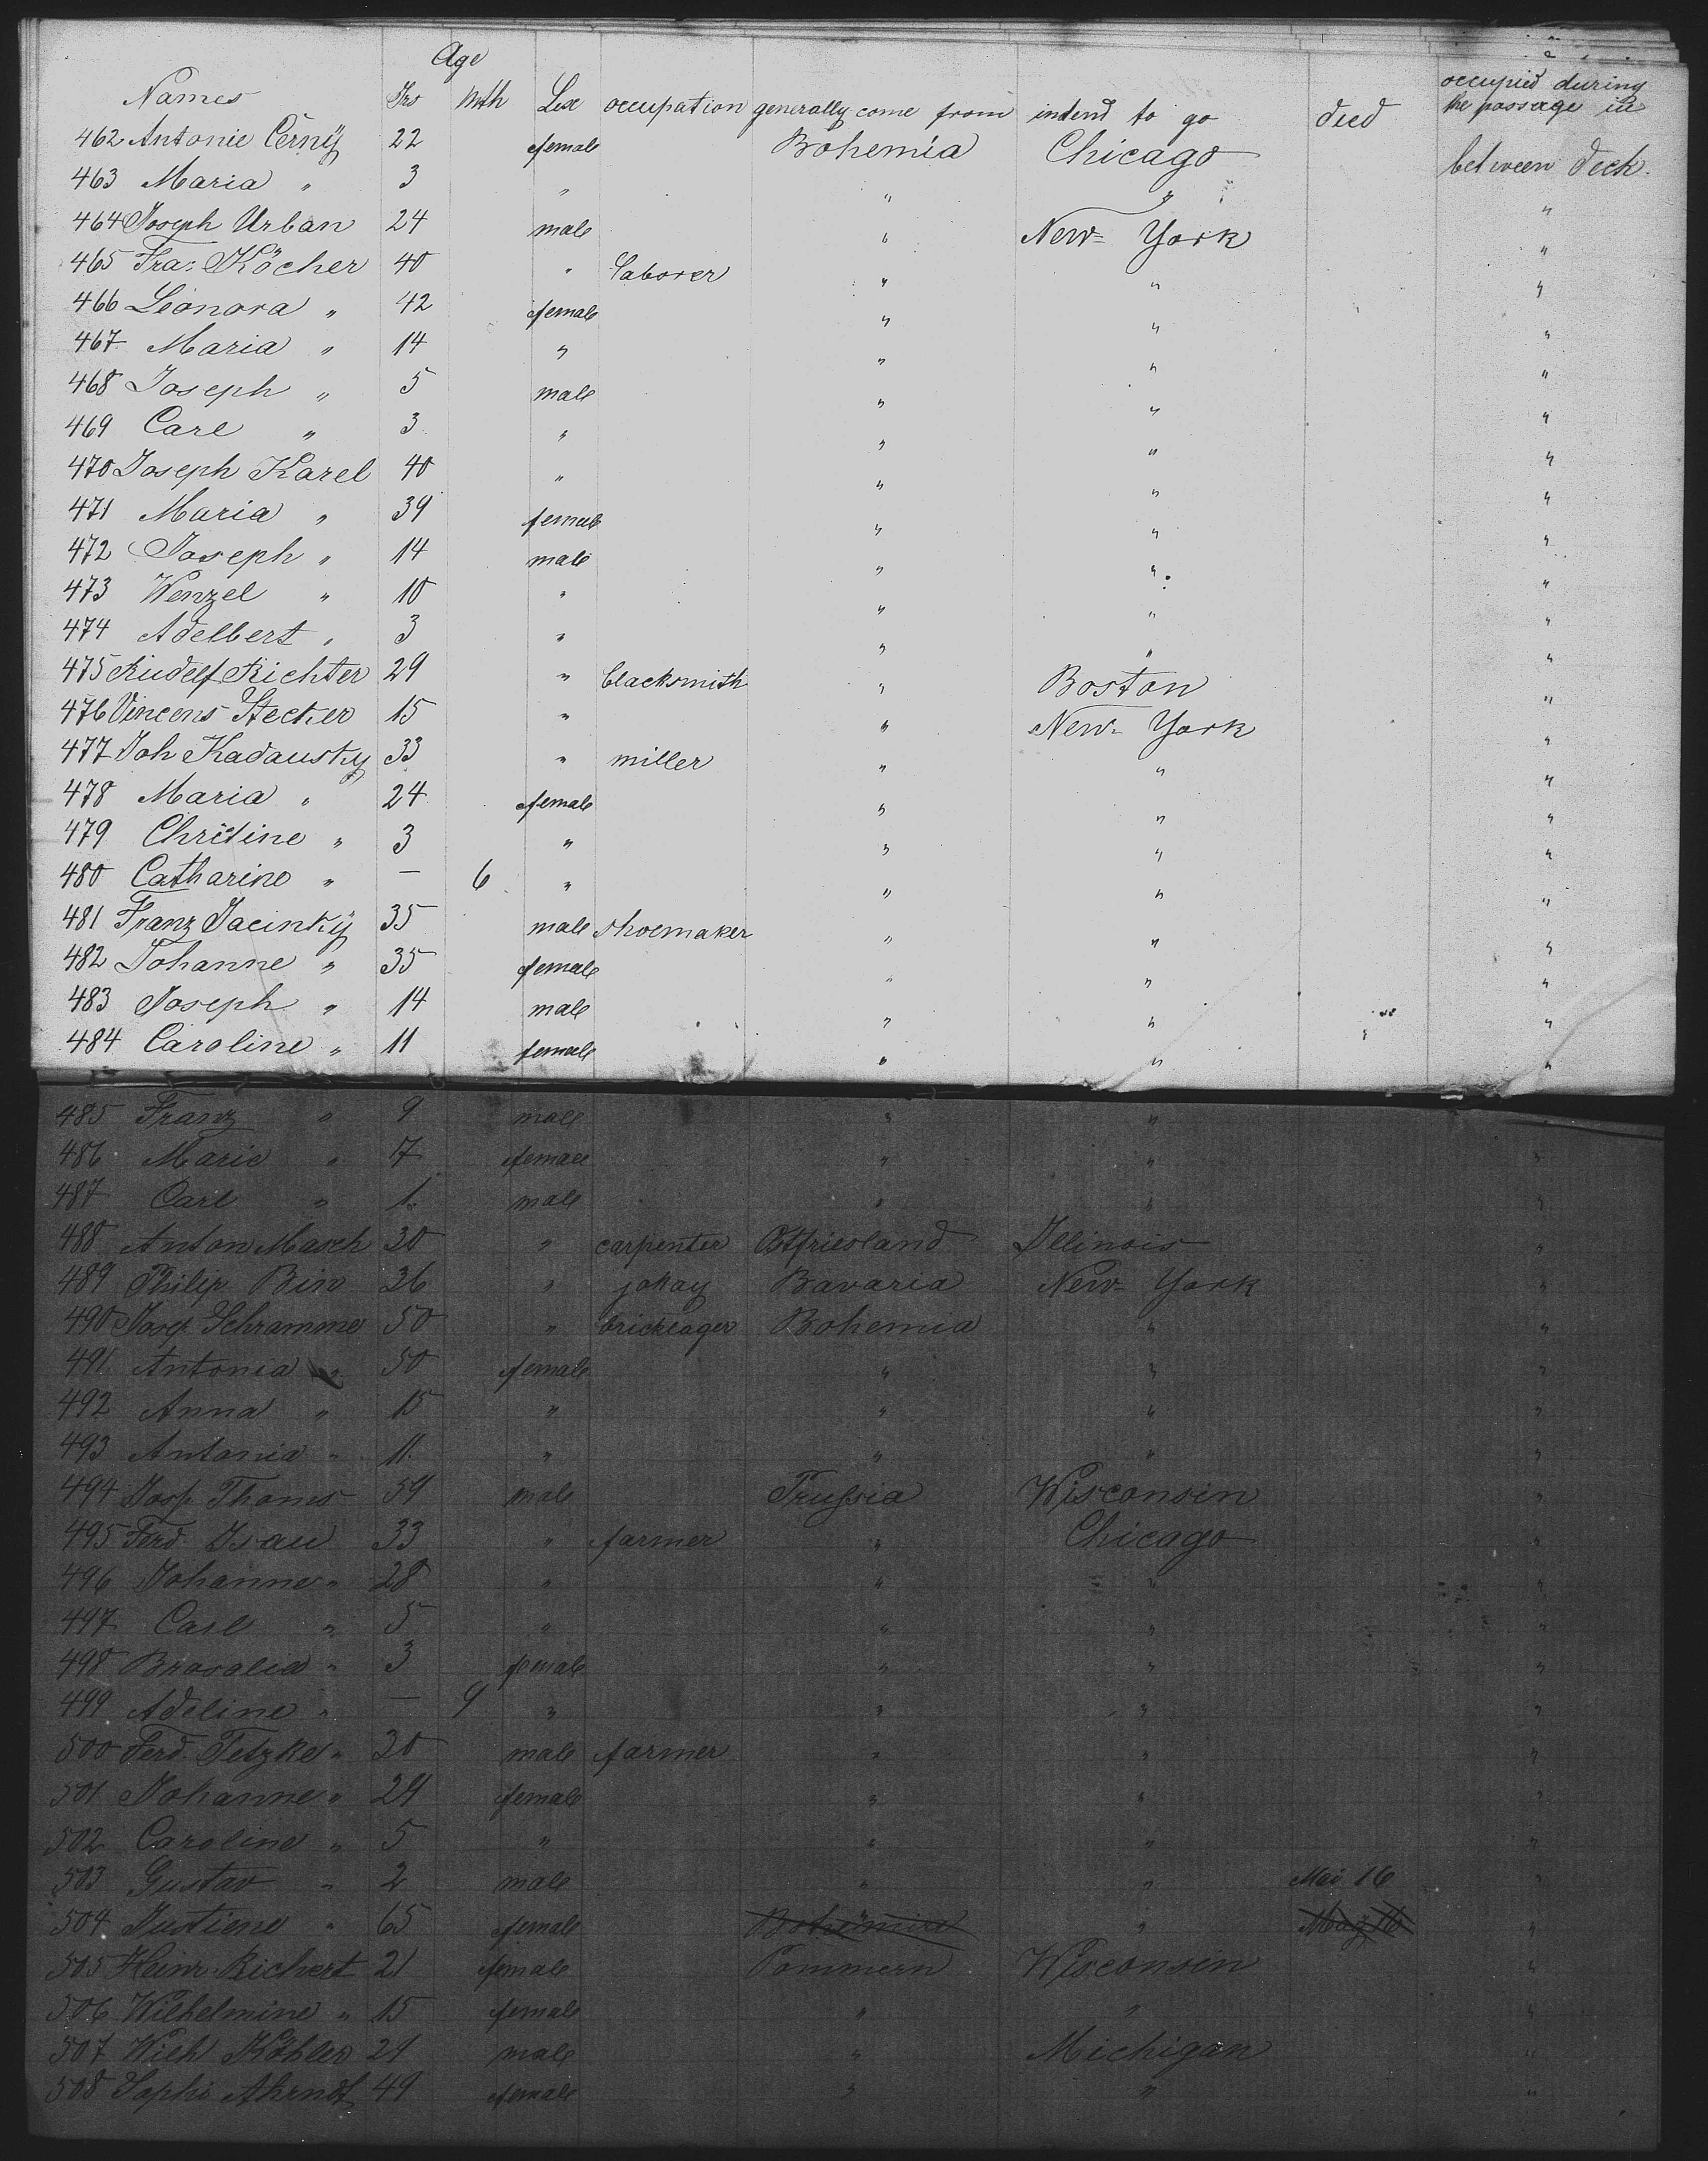 Age
Names Yrs Mth Sex occupation generally come from intend to go died occupied during the passage in
462 Antonie Černÿ 22 female Bohemia Chicago between deck.
463 Maria " 3 " " " "
464 Joseph Urban 24 male " New-York "
465 Fra: Köcher 40 " laborer " " "
466 Leonora " 42 female " " "
467 Maria " 14 " " " "
468 Joseph " 5 male " " "
469 Carl " 3 " " " "
470 Joseph Karel 40 " " " "
471 Maria " 39 female " " "
472 Joseph " 14 male " " "
473 Wenzel " 10 " " " "
474 Adelbert " 3 " " " "
475 Rudolf Richter 29 " blacksmith " Boston "
476 Vincens Stecker 15 " " New-York "
477 Joh Kadausky 33 " miller " " "
478 Maria " 24 female " " "
479 Christine " 3 " " " "
480 Catharine " — 6 " " " "
481 Franz Jacinkÿ 35 male shoemaker " " "
482 Johanne " 35 female " " "
483 Joseph " 14 male " " "
484 Caroline " 11 female " " "
485 Franz " 9 male " "
486 Marie " 7 female " " "
487 Carl " 1 male " " "
488 Anton Masch 30 " carpenter Ostfriesland Illinois "
489 Philip Bin 36 " Bavaria New-York "
490 Josep Schramme 50 " bricklager Bohemia " "
491 Antonia " 50 female " " "
492 Anna " 15 " " " "
493 Antonia " 11 " " " "
494 Josp. Thomes 59 male Prussia Wisconsin "
495 Ferd. Isau 33 " farmer " Chicago "
496 Johanne " 28 " " " "
497 Carl " 5 " " " "
498 Brosalia " 3 female " " "
499 Adeline " — 9 " " " "
500 Ferd. Tetzke " 30 male farmer " " "
501 Johanne " 29 female " " "
502 Caroline " 5 " " " "
503 Gustav " 2 male " " Mai 16 "
504 Justiene " 65 female Bohemia " May 16 "
505 Heinr Richert 21 female Pommern Wisconsin "
506 Wilhelmine " 15 female " " "
507 Wilh Köhler 29 male " Michigan "
508 Sophie Ahrndt 49 female " " "